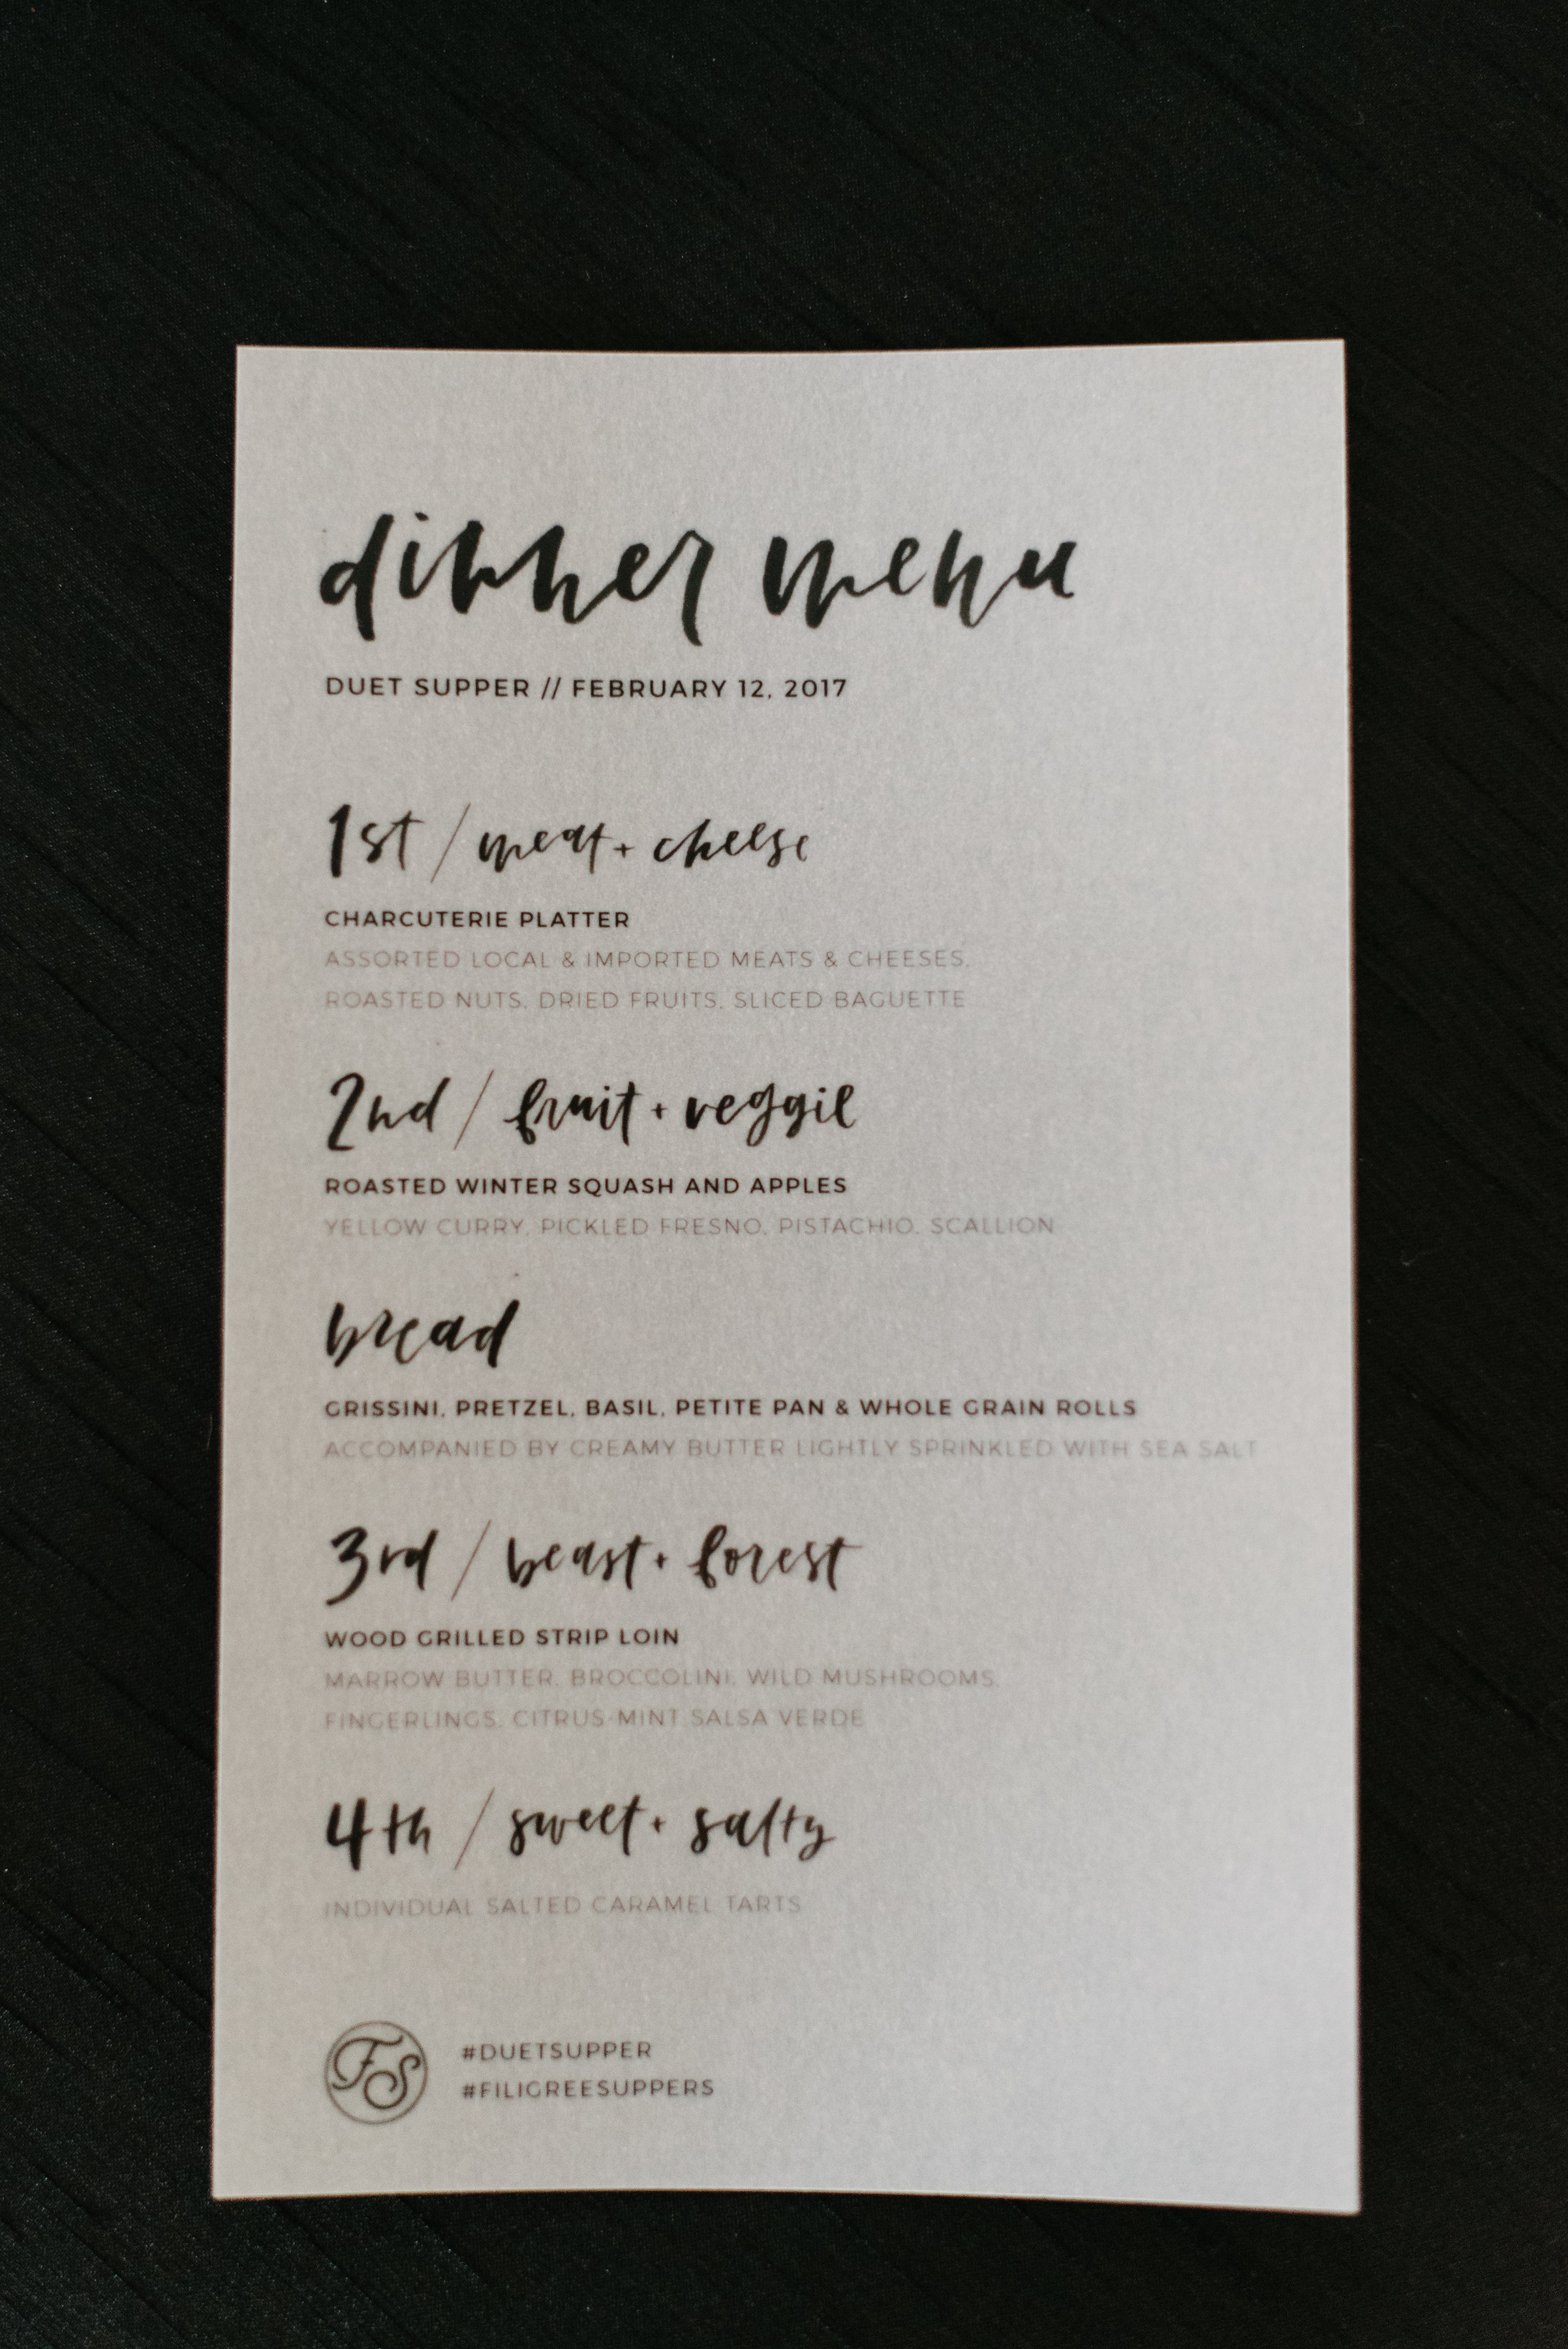 dinner menu
DUET SUPPER // FEBRUARY 12, 2017
1st / meat + cheese
CHARCUTERIE PLATTER
ASSORTED LOCAL & IMPORTED MEATS & CHEESES,
ROASTED NUTS, DRIED FRUITS, SLICED BAGUETTE
2nd / fruit + veggie
ROASTED WINTER SQUASH AND APPLES
YELLOW CURRY, PICKLED FRESNO, PISTACHIO, SCALLION
bread
GRISSINI, PRETZEL, BASIL, PETITE PAN & WHOLE GRAIN ROLLS
ACCOMPANIED BY CREAMY BUTTER LIGHTLY SPRINKLED WITH SEA SALT
3rd / beast + forest
WOOD GRILLED STRIP LOIN
MARROW BUTTER, BROCCOLINI, WILD MUSHROOMS,
FINGERLINGS, CITRUS-MINT SALSA VERDE
4th / sweet + salty
INDIVIDUAL SALTED CARAMEL TARTS
FS
#DUETSUPPER
#FILIGREESUPPERS